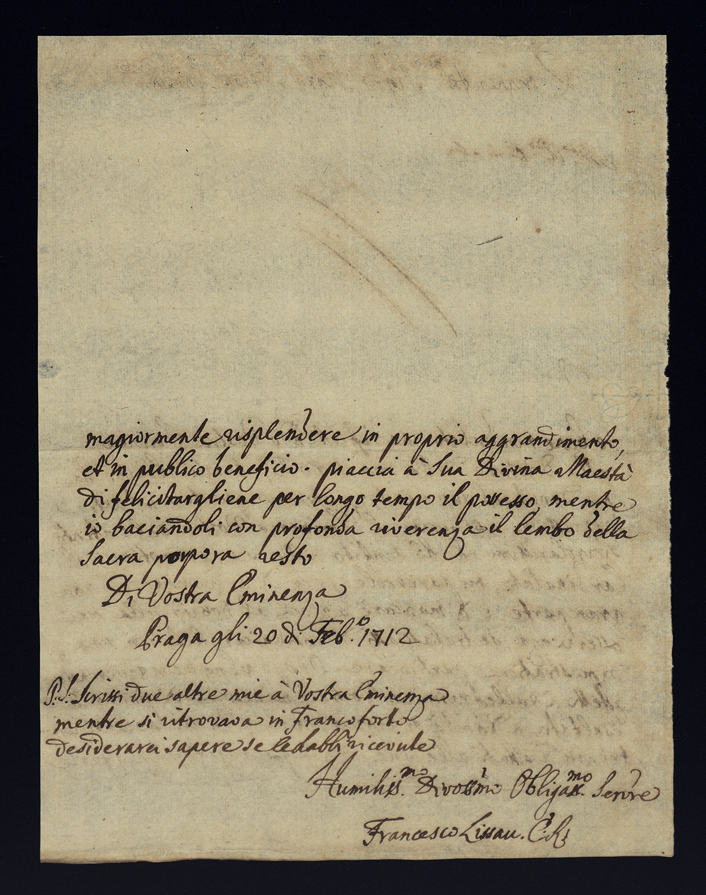 magiormente risplendere in proprio aggrandimento,
et in publico beneficio. piaccia à Sua Divina Maestà
di felicitargliene per longo tempo il possesso, mentre
io baciandoli con profonda riverenza il lembo della
Sacra porpora resto
Di Vostra Eminenza
Praga gli 20 di Feb.º 1712
P.S. Scrissi due altre mie à Vostra Eminenza
mentre si ritrovava in Francoforto
desiderarei sapere se le habbi ricevute
Humiliss.mo Divoss.mo Obligass.mo Serv.re
Francesco Lissau.